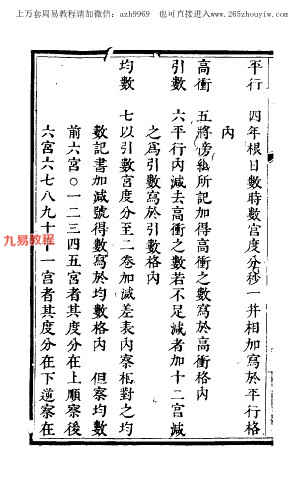 上万套周易教程请加微信：azh9969 也可直接进入www.265zhouyiw.com
平行 四年根日數時數宮度分秒一并相加寫於平行格
内
高衝 五將傍紙所記加得高衝之數寫於高衝格内
引數 六平行内減去高衝之數若不足減者加十二宮減
之爲引數寫於引數格内
均數 七以引數宮度分至二卷加減差表内察相對之均
數記書加減號得數寫於均數格内 但察均數
前六宮○一二三四五宮者其度分在上順察後
六宮六七八九十十一宮者其度分在下逆察在
九易教程